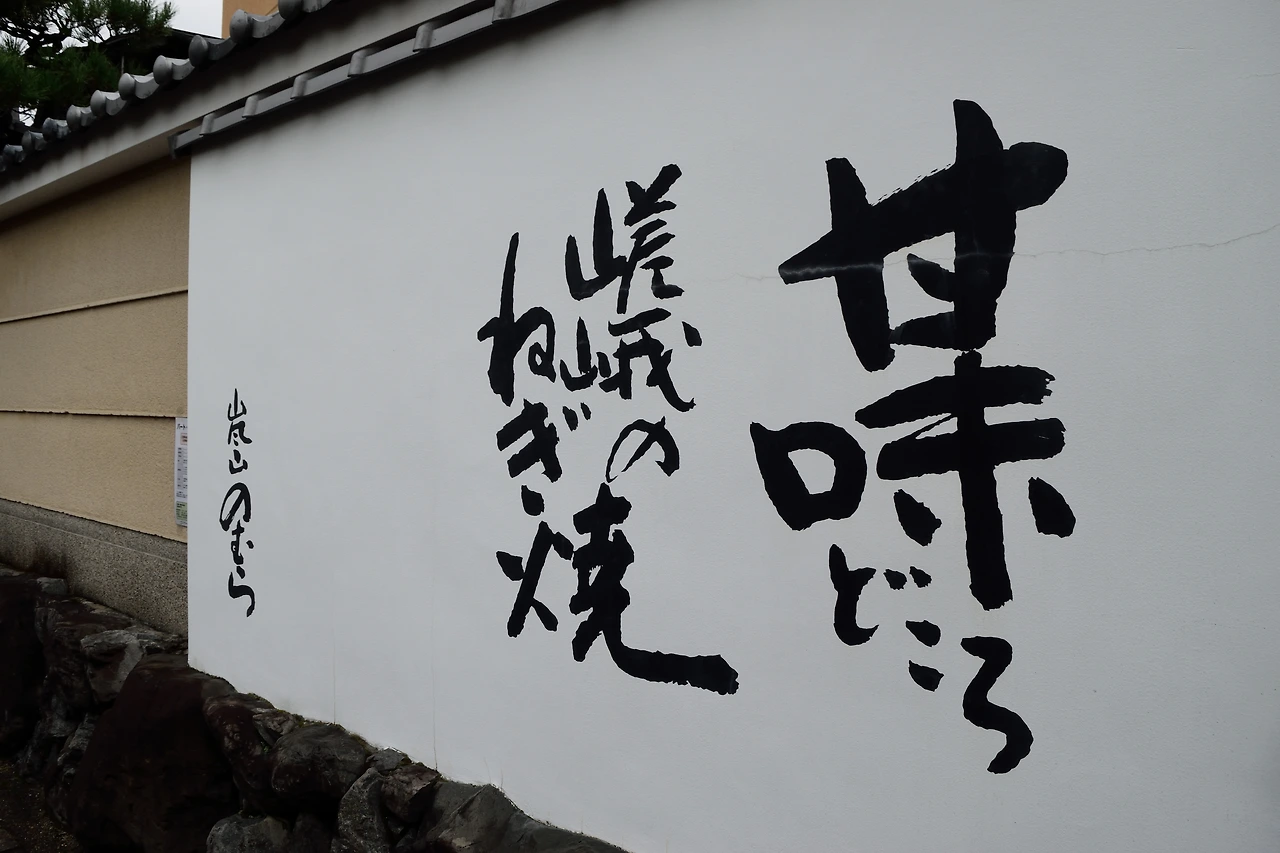 甘味どころ
嵯峨の
ねぎ焼
嵐山のむら